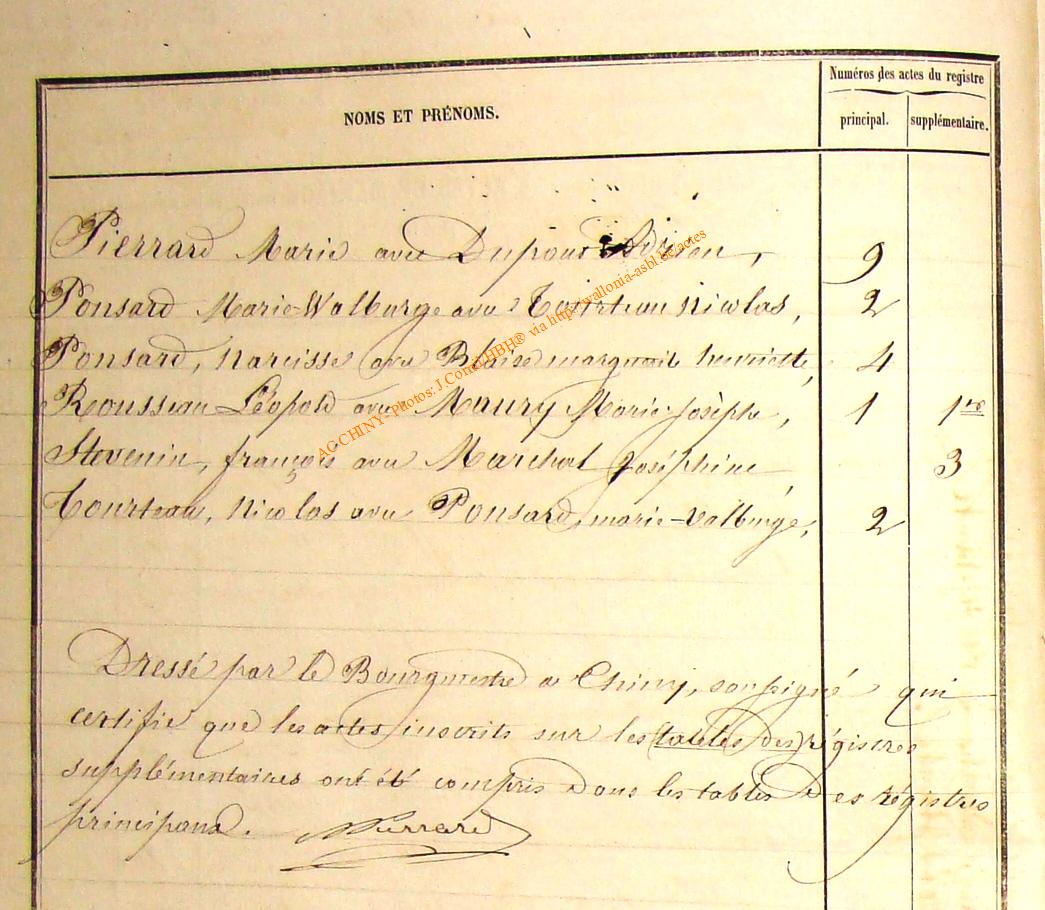 Numéros des actes du registre
NOMS ET PRÉNOMS.
principal. supplémentaire.
Pierrard Marie avec Dupont Adrien, 9
Ponsard Marie-Walburge avec Tourteau Nicolas, 2
Ponsard, Narcisse avec Blaise marguerite henriette, 4
Rousseau Léopold avec Maury Marie-Josèphe, 1 1er
Stevenin, françois avec Marchal Joséphine 3
Tourteau, Nicolas avec Ponsard, marie-Valburge, 2
Dressé par le Bourgmestre à Chiny, soussigné qui
certifie que les actes inscrits sur les tables des régistres
supplémentaires ont été compris dans les tables des régistres
principaux. Pierrard
AC CHINY - Photos: J.Comblin via http://wallonia-asbl.be/actes